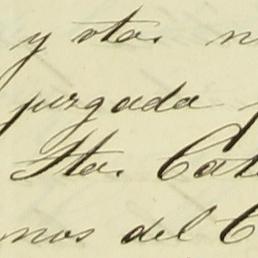 y otas
juzgada
Sta. Cat
nos del C